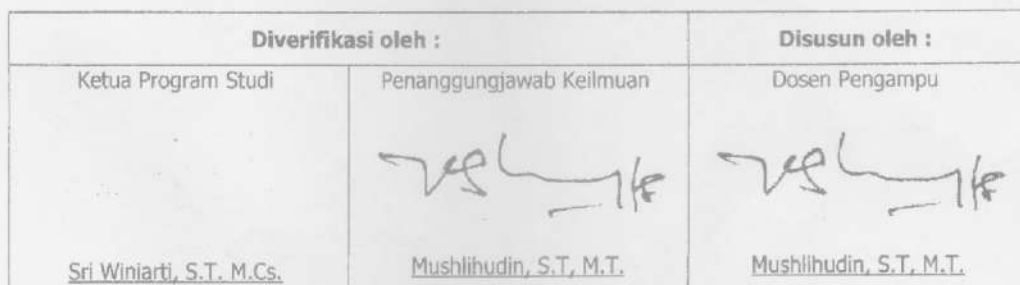 Diverifikasi oleh :
Disusun oleh :
Ketua Program Studi
Penanggungjawab Keilmuan
Dosen Pengampu
Sri Winiarti, S.T. M.Cs.
Mushlihudin, S.T, M.T.
Mushlihudin, S.T, M.T.